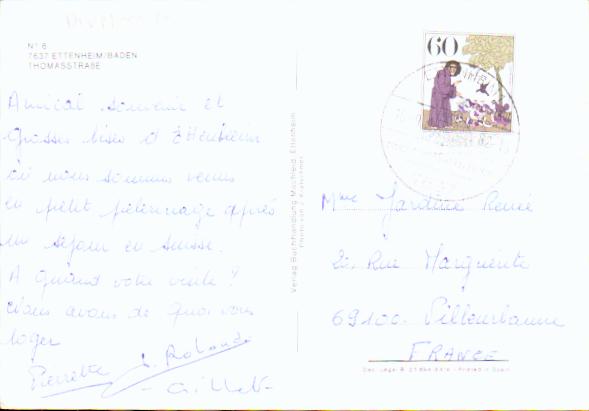 Nº 6
7637 ETTENHEIM/BADEN
THOMASSTRAßE
Amical souvenir et
grosses bises d'Ettenheim
où nous sommes venus
en petit pèlerinage après
un séjour en Suisse.
A quand votre visite ?
Nous avons de quoi vous
loger
Pierrette & Rolande
Verlag Buchhandlung Machleid, Ettenheim
60
Mme Jardine Renée
Rue Marguerite
69100 Villeurbanne
FRANCE
Printed in Spain